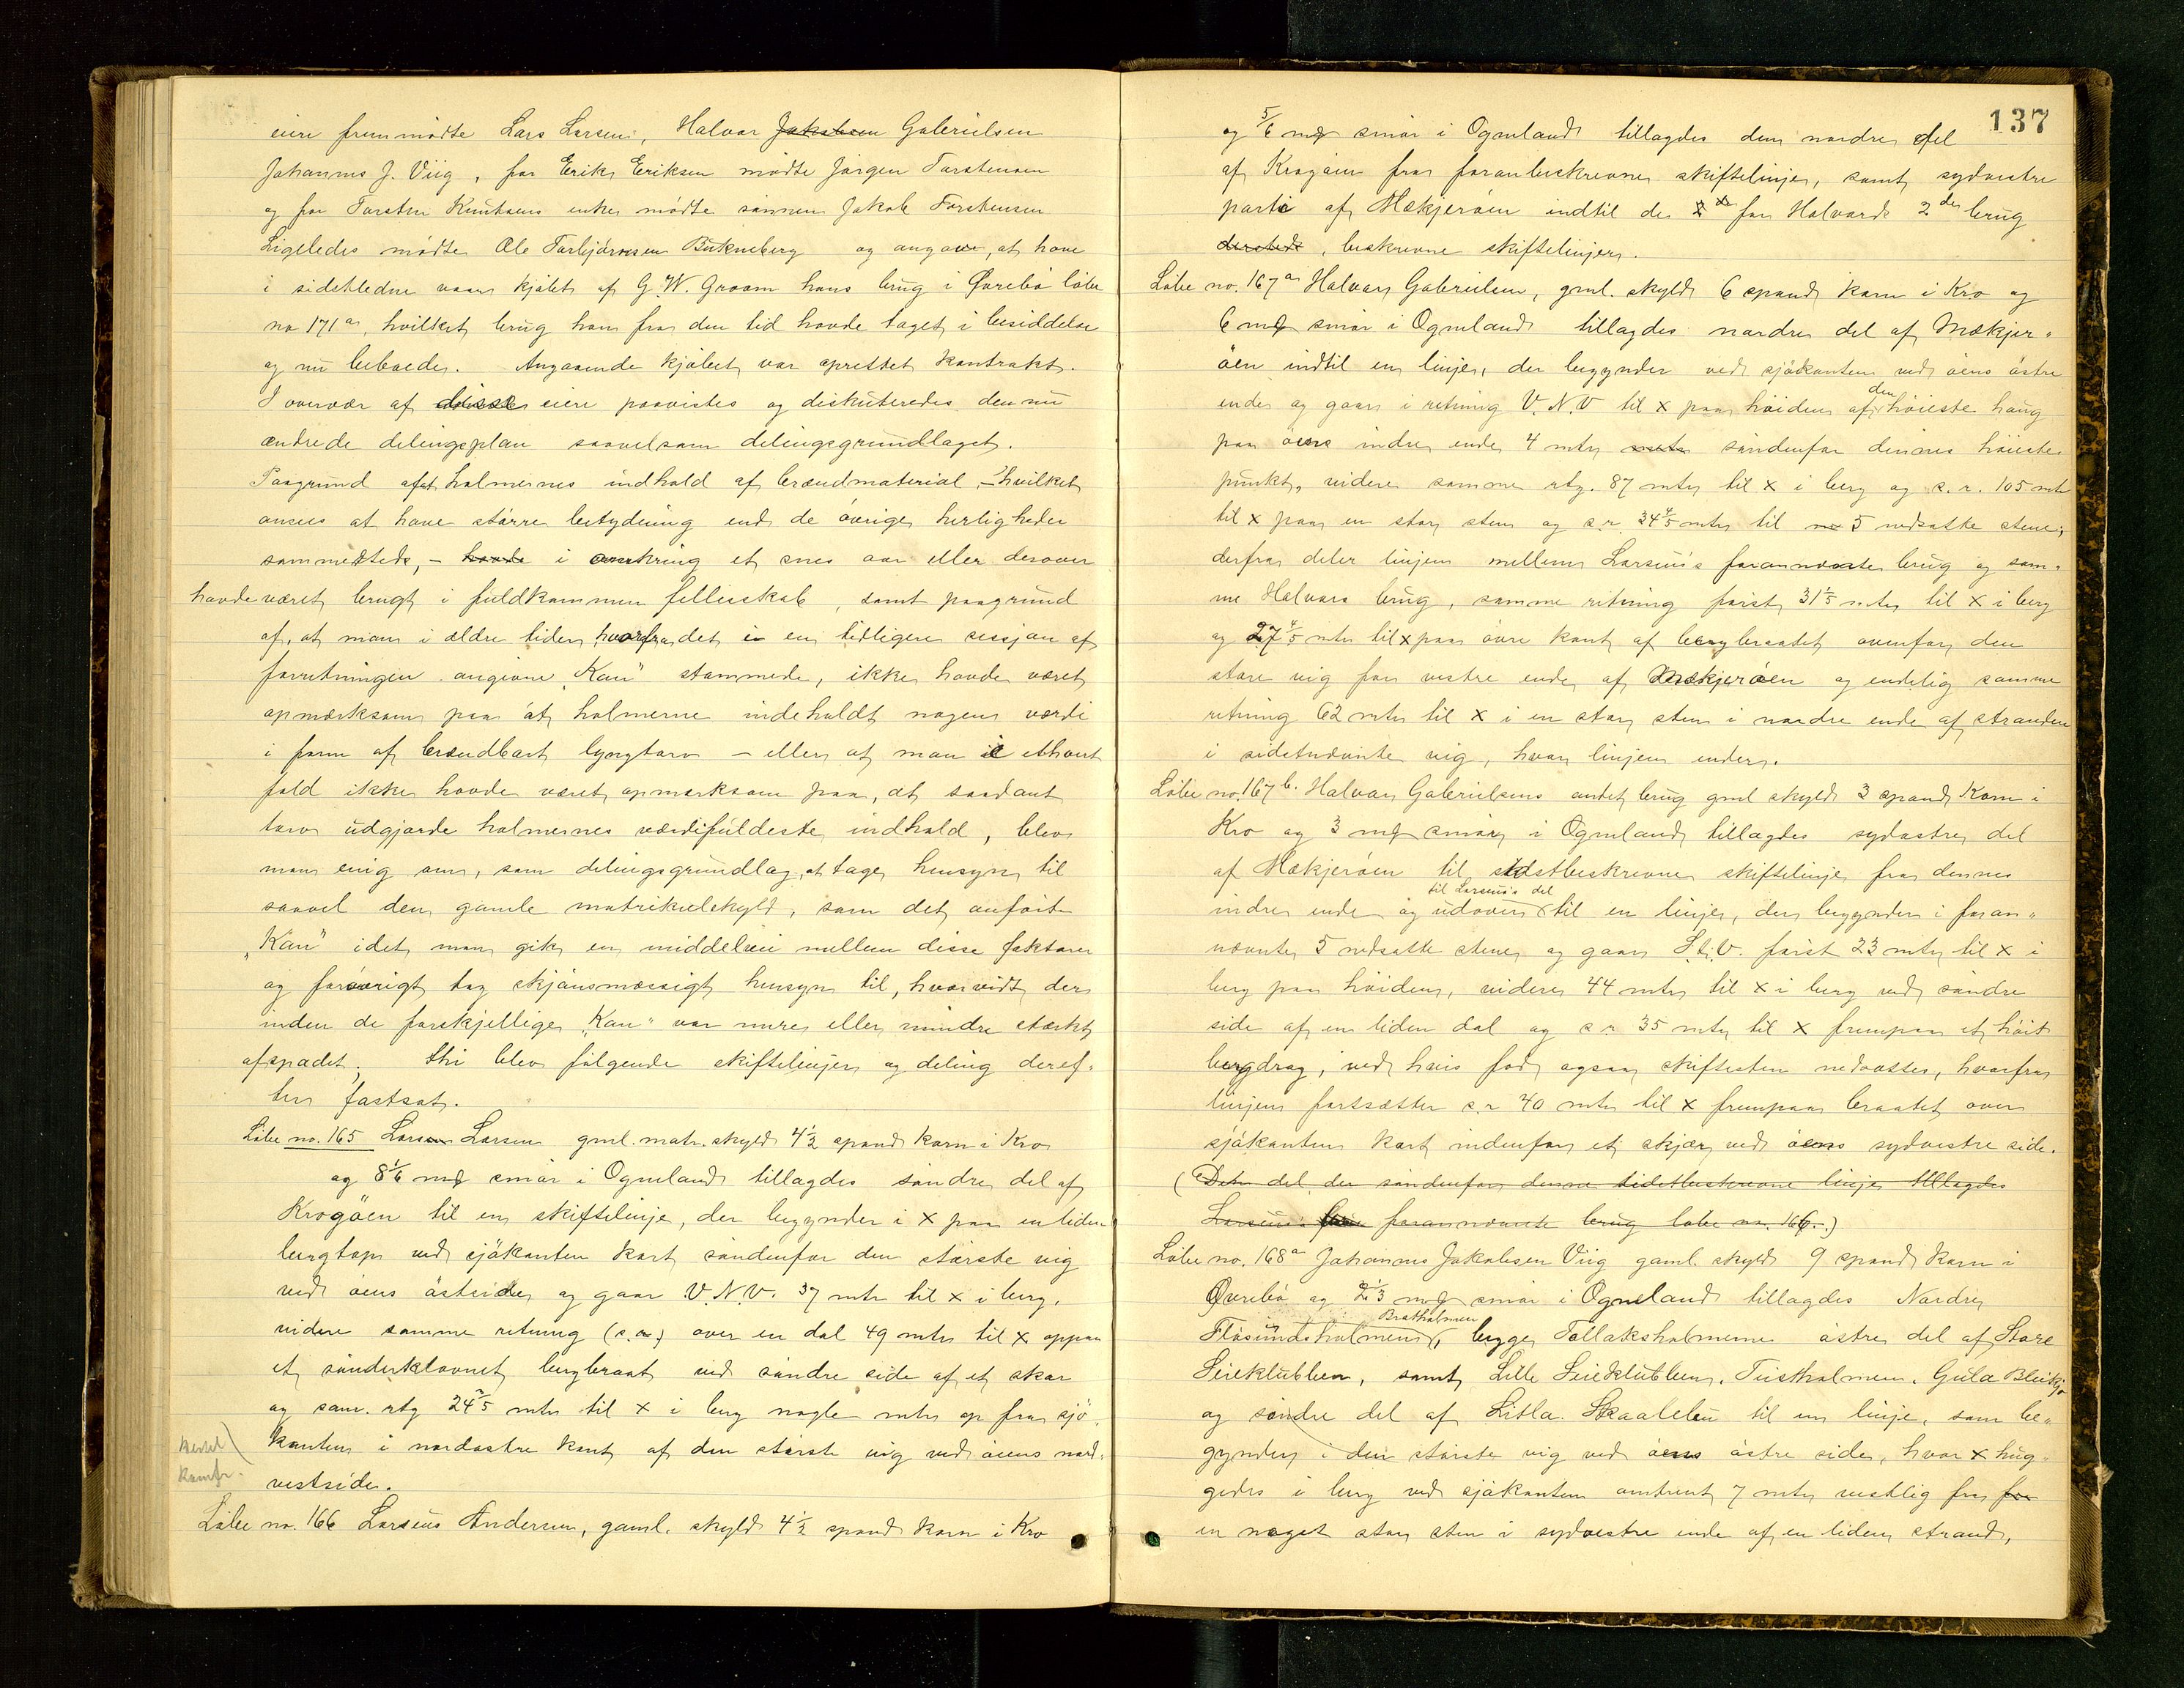 eiere fremmødte Lars Larsen, Halvor Jakobsen Gabrielsen
Johannes J. Viig, for Erik Eriksen mødte Jørgen Torstensen
og for Torsten Knutsens enke mødte sønnen Jakob Torstensen
Ligeledes mødte Ole Torbjørnsen Bukneberg og angave, at have
i sidstledne vaar kjøbt af G. W. Groom hans brug i Øvrebø løbe
no 171a, hvilket brug han fra den tid havde taget i besiddelse
og nu beboede. Angaaende kjøbet var oprettet kontrakt.
I overvær af disse eiere paavistes og diskuteredes den nu
ændrede delingsplan saavelsom delingsgrundlaget.
Paagrund af at holmernes indhold af brændmaterial, – hvilket
ansees at have større betydning end de øvrige herligheder
sammesteds, – havde i omkring et snes aar eller derover
havde været brugt i fuldkommen fellesskab, samt paagrund
af, at man i ældre tider, hvorfra det i en tidligere sessjon af
forretningen angivne "Kau" stammede, ikke havde været
opmærksom paa at holmerne indeholdt nogen værdi
i form af brændbart lyngtorv – eller at man i ethvert
fald ikke havde været opmærksom paa, at saadant
torv udgjorde holmernes værdifuldeste indhold, blev
man enig om, som delingsgrundlag, at tage hensyn til
saavel den gamle matrikulskyld, som det anførte
"Kau" idet man gik en middelvei mellem disse faktorer
og forøvrigt tog skjønsmæssigt hensyn til, hvorvidt der
inden de forskjellige "Kau" var mere eller mindre stærkt
afspadet. Thi blev følgende skiftelinjer og deling deref-
ter fastsat.
Løbe no. 165 Lars Larsen gml. matr. skyld 4½ spand korn i Kro
og 8⅙ mk smør i Ogneland tillagdes søndre del af
Krogøen til en skiftelinje, der begynder i x paa en liden
bergtop ved sjøkanten kort søndenfor den største vig
ved øens østside og gaar V.N.V. 37 mtr til x i berg,
videre samme retning (s.r.) over en dal 49 mtr til x oppaa
et sønderklovnet bergbraat ved søndre side af et skar
og sam. rtg 24⅖ mtr til x i berg nogle mtr op fra sjø-
kanten i nordøstre kant af den største vig ved øens nord-
vestside.
Løbe no. 166 Larseus Andersen, gaml. skyld 4½ spand korn i Kro
137
og 5/6 mk smør i Ogneland tillagdes den nordre del
af Krogøen fra foranbeskrevne skiftelinje, samt sydvestre
parti af Mækjerøen indtil de for Halvards 2det brug
dersteds, beskrevne skiftelinjer.
Løbe no. 167a Halvor Gabrielsen, gml. skyld 6 spand korn i Kro og
6 mk smør i Ogneland tillagdes nordre del af Mækjer-
øen indtil en linje, der begynder ved sjøkanten ved øens østre
ende og gaar i retning V.N.V til x paa høiden af den høieste haug
paa øens indre ende 4 mtr søndenfor dennes høieste
punkt, videre samme rtg. 87 mtr til x i berg og s. r. 105 mtr
til x paa en stor sten og s.r. 34⅘ mtr til 5 nedsatte stene,
derfra deler linjen mellem Larseus's forannævnte brug og sam-
me Halvors brug, samme retning først 31⅕ mtr til x i berg
og 27⅘ mtr til x paa øvre kant af bergbraatet ovenfor den
store vig paa vestre ende af Mækjerøen og endelig samme
retning 62 mtr til x i en stor sten i nordre ende af stranden
i sidstnævnte vig, hvor linjen ender.
Løbe no. 167b. Halvor Gabrielsens andet brug gml skyld 3 spand korn i
Kro og 3 mk smør i Ogneland tillagdes sydøstre del
af Mækjerøen til sidstbeskrevne skiftelinje fra dennes
indre ende og udover til Larseus's del til en linje, der begynder i foran-
nævnte 5 nedsatte stene og gaar S.t.V. først 23 mtr til x i
berg paa høiden, videre 44 mtr til x i berg ved søndre
side af en liden dal og s r. 35 mtr til x frempaa et høit
bergdrag, ved hvis fod ogsaa skiftesten nedsattes, hvorfra
linjen fortsætter s.r 40 mtr til x frempaa braatet over
sjøkanten kort indenfor et skjær ved øens sydvestre side.
(Den del der søndenfor denne sidstbeskrevne linje tillagdes
Larseus's forannævnte brug løbe no. 166.)
Løbe no. 168a Johannes Jakobsen Viig gaml. skyld 9 spand korn i
Øvrebø og 2⅓ mk smør i Ogneland tillagdes Nordre
Flosundsholmen, Bratholmen begge Tollaksholmerne østre del af Store
Seieklubben, samt Lille Seieklubben, Tuistholmen, Gula Bleikjo
og søndre del af Litla Skaalebu til en linje, som be-
gynder i den største vig ved øens østre side, hvor x hug-
gedes i berg ved sjøkanten omtrent 7 mtr vestlig fra
en noget stor sten i sydvestre ende af en liden strand,